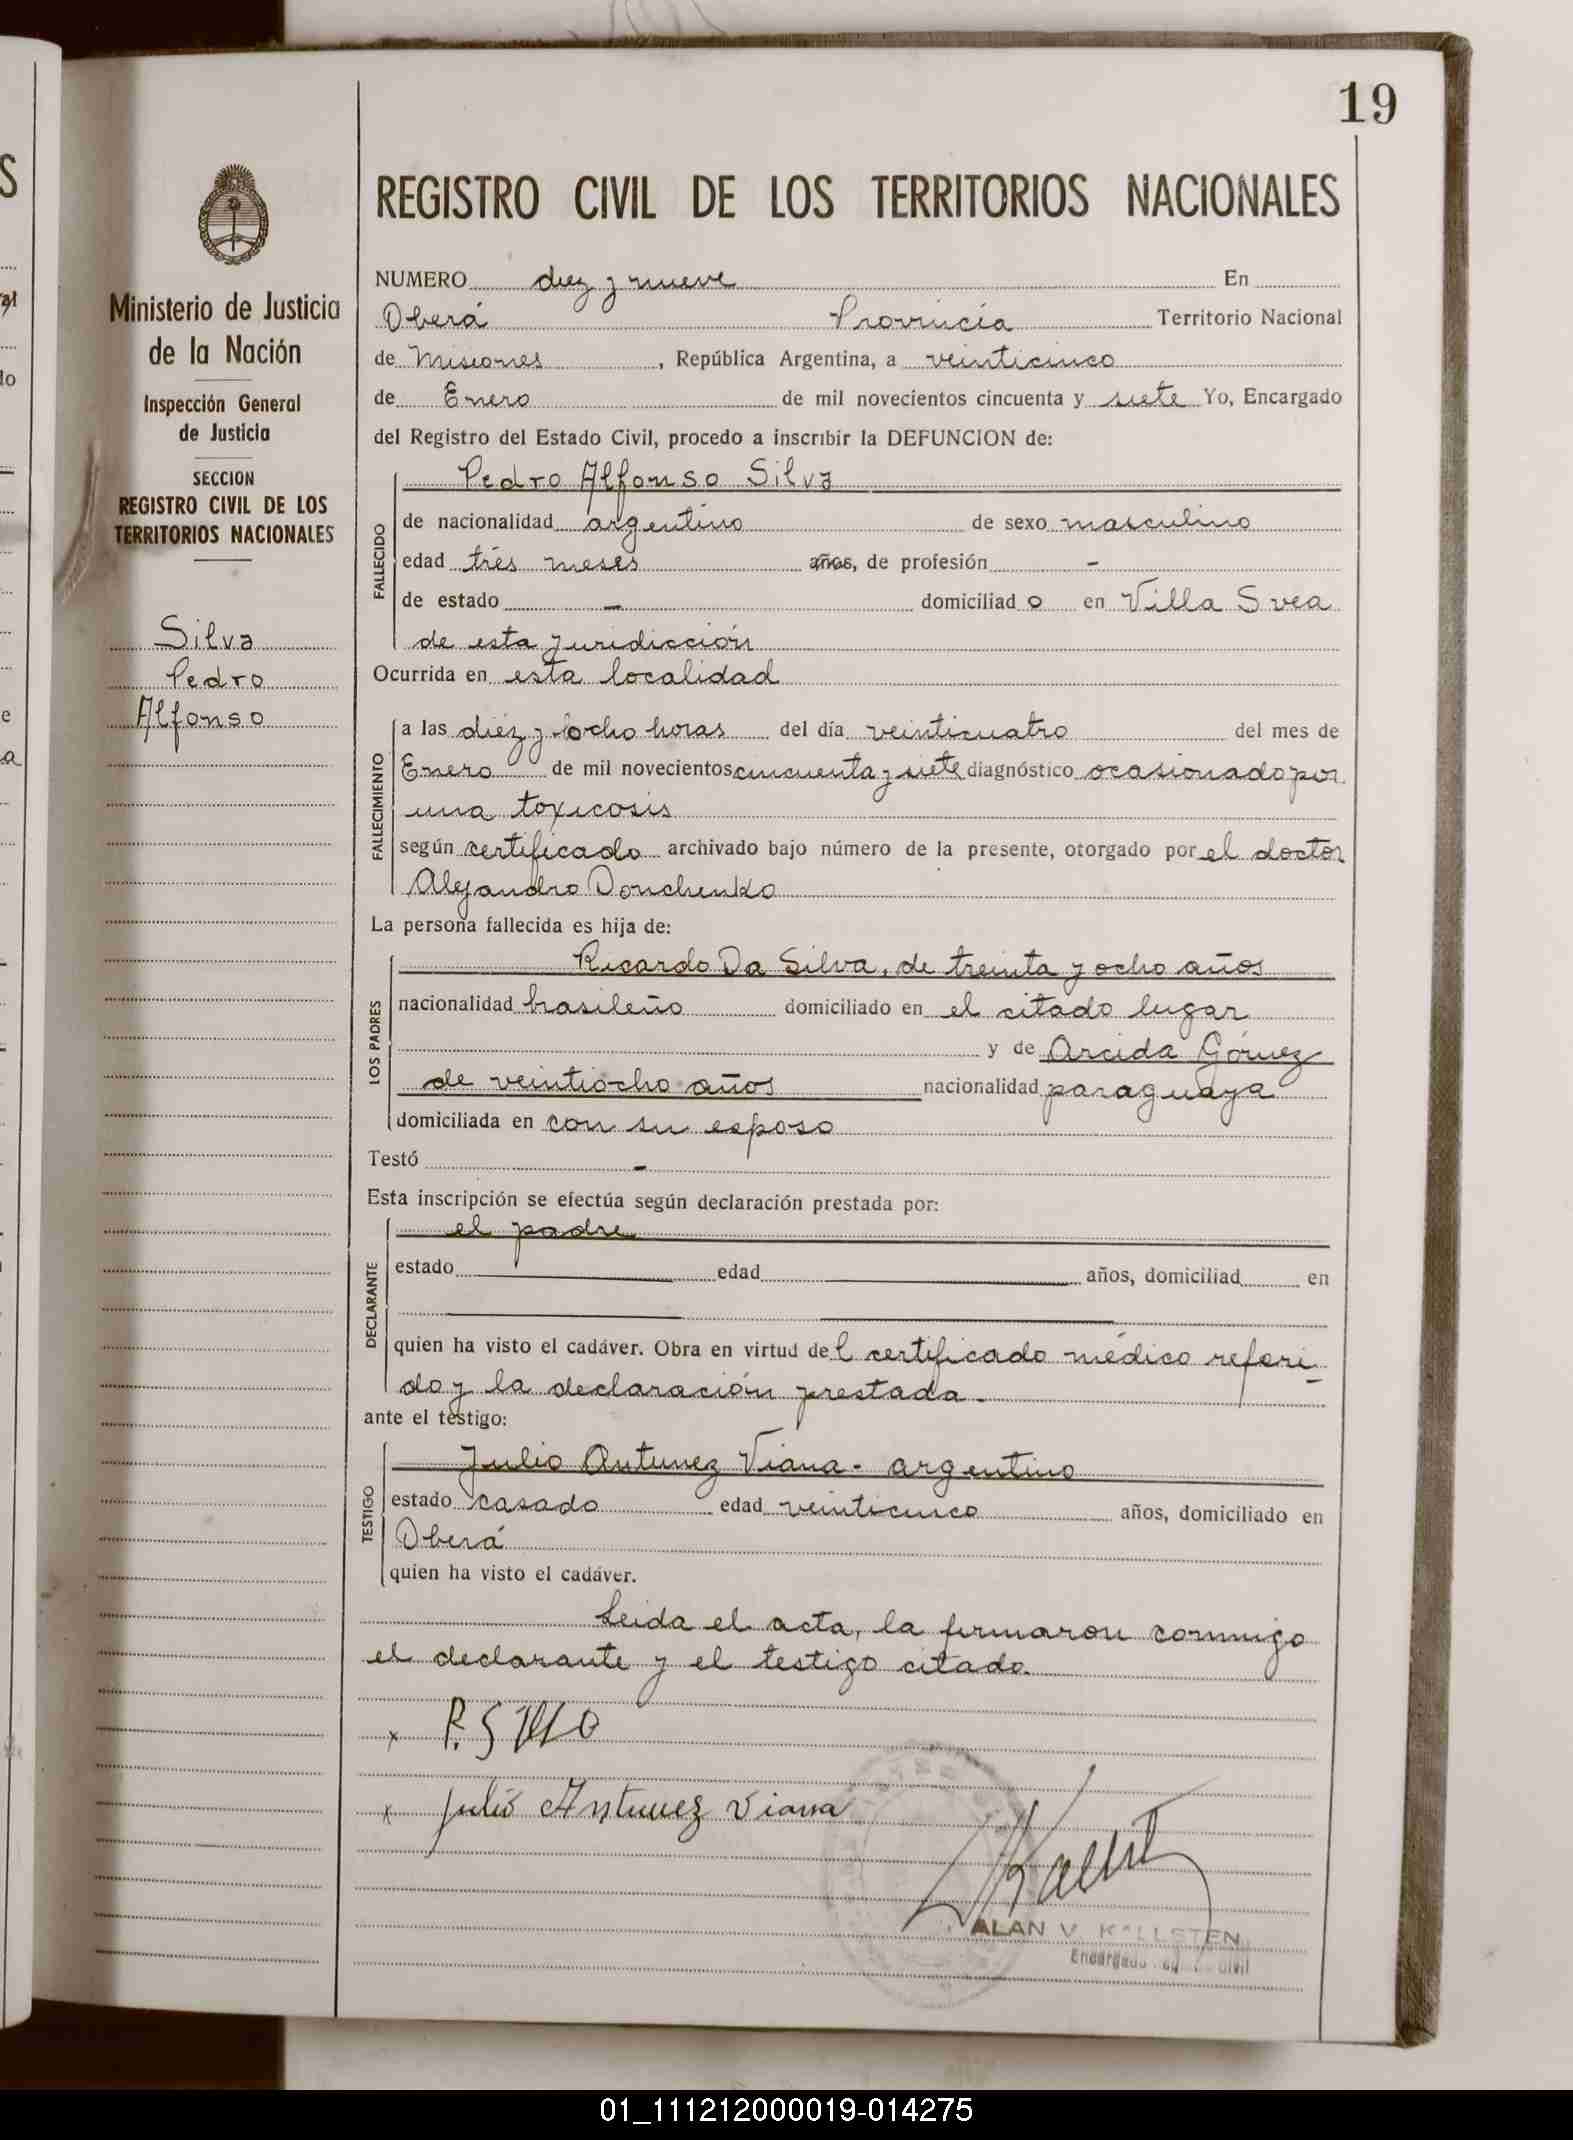 19
REGISTRO CIVIL DE LOS TERRITORIOS NACIONALES
Ministerio de Justicia
de la Nación
Inspección General
de Justicia
SECCION
REGISTRO CIVIL DE LOS
TERRITORIOS NACIONALES
Silva
Pedro
Alfonso
NUMERO diez y nueve En
Oberá Provincia Territorio Nacional
de Misiones, República Argentina, a veinticinco
de Enero de mil novecientos cincuenta y siete Yo, Encargado
del Registro del Estado Civil, procedo a inscribir la DEFUNCION de:
FALLECIDO
Pedro Alfonso Silva
de nacionalidad argentino de sexo masculino
edad tres meses años, de profesión -
de estado - domiciliado en Villa Svea
de esta juridicción
Ocurrida en esta localidad
FALLECIMIENTO
a las diez y ocho horas del día veinticuatro del mes de
Enero de mil novecientos cincuenta y siete diagnóstico ocasionado por
una toxicosis
según certificado archivado bajo número de la presente, otorgado por el doctor
Alejandro Donchenko
La persona fallecida es hija de:
LOS PADRES
Ricardo Da Silva, de treinta y ocho años
nacionalidad brasileño domiciliado en el citado lugar
y de Arcida Gómez
de veintiocho años nacionalidad paraguaya
domiciliada en con su esposo
Testó -
Esta inscripción se efectúa según declaración prestada por:
DECLARANTE
el padre
estado edad años, domiciliad en
quien ha visto el cadáver. Obra en virtud del certificado médico referi-
do y la declaración prestada.
ante el testigo:
TESTIGO
Julio Antunez Viana - argentino
estado casado edad veinticinco años, domiciliado en
Oberá
quien ha visto el cadáver.
Leida el acta, la firmaron conmigo
el declarante y el testigo citado.
x R. Silva
x Julio Antunez Viana
ALAN V. KALLSTEN
Encargado Civil
01_111212000019-014275